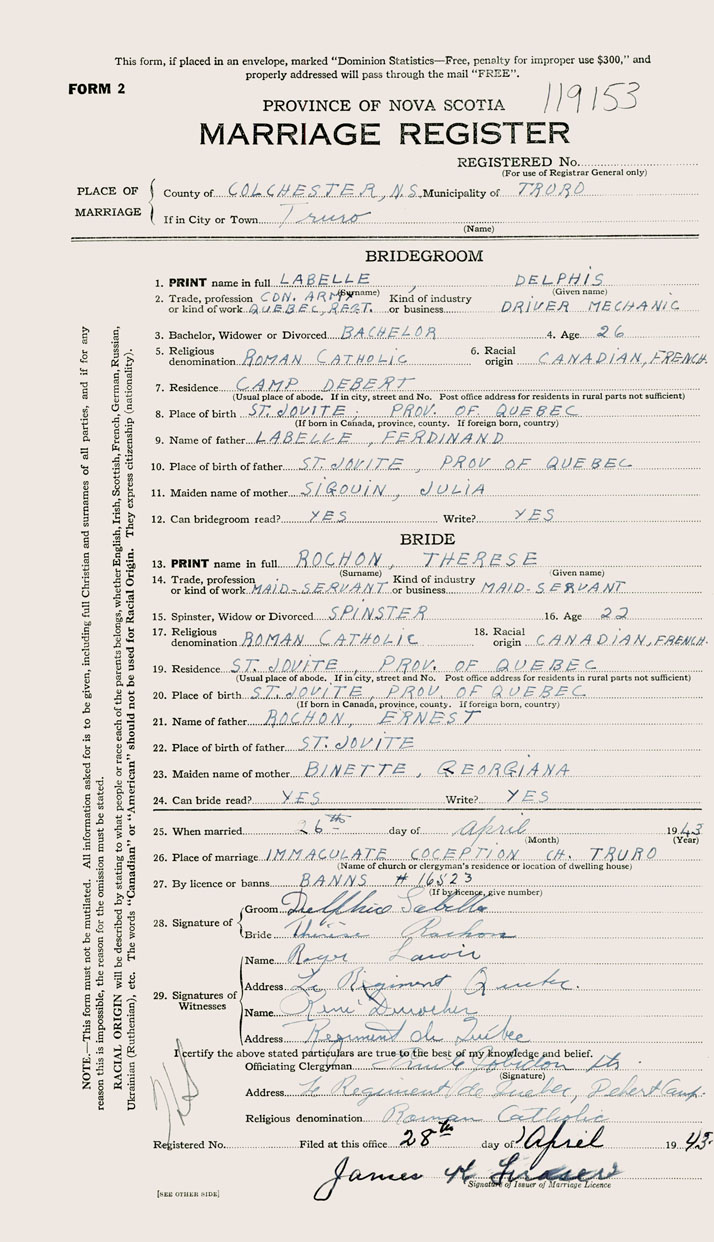 This form, if placed in an envelope, marked “Dominion Statistics—Free, penalty for improper use $300,” and
properly addressed will pass through the mail “FREE”.
FORM 2
119153
PROVINCE OF NOVA SCOTIA
MARRIAGE REGISTER
REGISTERED No.
(For use of Registrar General only)
PLACE OF MARRIAGE
County of COLCHESTER, N.S. Municipality of TRURO
If in City or Town Truro
(Name)
BRIDEGROOM
1. PRINT name in full LABELLE, DELPHIS
(Surname) (Given name)
2. Trade, profession CDN. ARMY Kind of industry
or kind of work QUEBEC, REGT. or business DRIVER MECHANIC
3. Bachelor, Widower or Divorced BACHELOR 4. Age 26
5. Religious 6. Racial
denomination ROMAN CATHOLIC origin CANADIAN, FRENCH.
7. Residence CAMP DEBERT
(Usual place of abode. If in city, street and No. Post office address for residents in rural parts not sufficient)
8. Place of birth ST. JOVITE, PROV. OF QUEBEC
(If born in Canada, province, county. If foreign born, country)
9. Name of father LABELLE, FERDINAND
10. Place of birth of father ST. JOVITE, PROV OF QUEBEC
11. Maiden name of mother SIGOUIN, JULIA
12. Can bridegroom read? YES Write? YES
BRIDE
13. PRINT name in full ROCHON, THERESE
(Surname) (Given name)
14. Trade, profession Kind of industry
or kind of work MAID-SERVANT or business MAID-SERVANT
15. Spinster, Widow or Divorced SPINSTER 16. Age 22
17. Religious 18. Racial
denomination ROMAN CATHOLIC origin CANADIAN, FRENCH.
19. Residence ST. JOVITE, PROV. OF QUEBEC
(Usual place of abode. If in city, street and No. Post office address for residents in rural parts not sufficient)
20. Place of birth ST. JOVITE, PROV OF QUEBEC
(If born in Canada, province, county. If foreign born, country)
21. Name of father ROCHON, ERNEST
22. Place of birth of father ST. JOVITE
23. Maiden name of mother BINETTE, GEORGIANA
24. Can bride read? YES Write? YES
25. When married 26th day of April 1943
(Month) (Year)
26. Place of marriage IMMACULATE COCEPTION CH. TRURO
(Name of church or clergyman's residence or location of dwelling house)
27. By licence or banns BANNS # 16523
(If by licence, give number)
28. Signature of
Groom Delphis Labelle
Bride Thérèse Rochon
29. Signatures of Witnesses
Name Roger
Address Le Régiment Quebec.
Name René Durocher
Address Regiment de Québec
I certify the above stated particulars are true to the best of my knowledge and belief.
Officiating Clergyman
(Signature)
Address Le Regiment de Quebec, Debert Camp.
Religious denomination Roman Catholic
Registered No. Filed at this office 28th day of April 1943.
James
Signature of Issuer of Marriage Licence
[SEE OTHER SIDE]
NOTE.—This form must not be mutilated. All information asked for is to be given, including full Christian and surnames of all parties, and if for any
reason this is impossible, the reason for the omission must be stated.
RACIAL ORIGIN will be described by stating to what people or race each of the parents belongs, whether English, Irish, Scottish, French, German, Russian,
Ukrainian (Ruthenian), etc. The words “Canadian” or “American” should not be used for Racial Origin. They express citizenship (nationality).